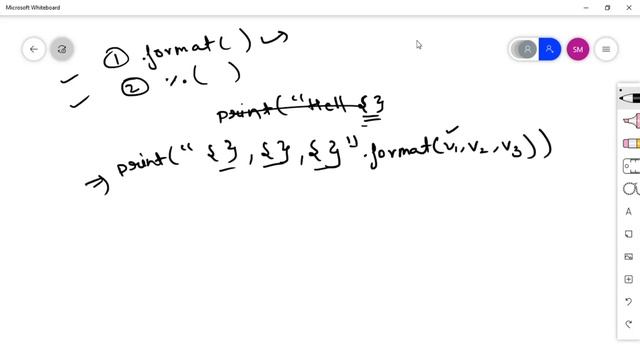 Microsoft Whiteboard
SM
① .format( )
② %( )
print("Hell {}
⇒ print(" {} , {} , {} ".format(v1, v2, v3))
A